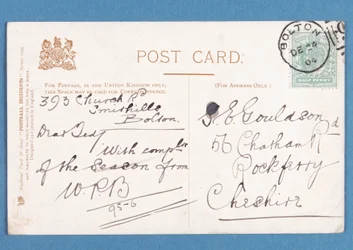 POST CARD.
FOR POSTAGE, IN THE UNITED KINGDOM ONLY,
THIS SPACE MAY BE USED FOR CORRESPONDENCE
(FOR ADDRESS ONLY.)
BOLTON
DE 24
04
HALF PENNY
393 Church
Smithills
Bolton.
Dear
With compts
of the Season from
W.P.B
95-6
E Gouldson
56 Chatham
Rockferry
Cheshire